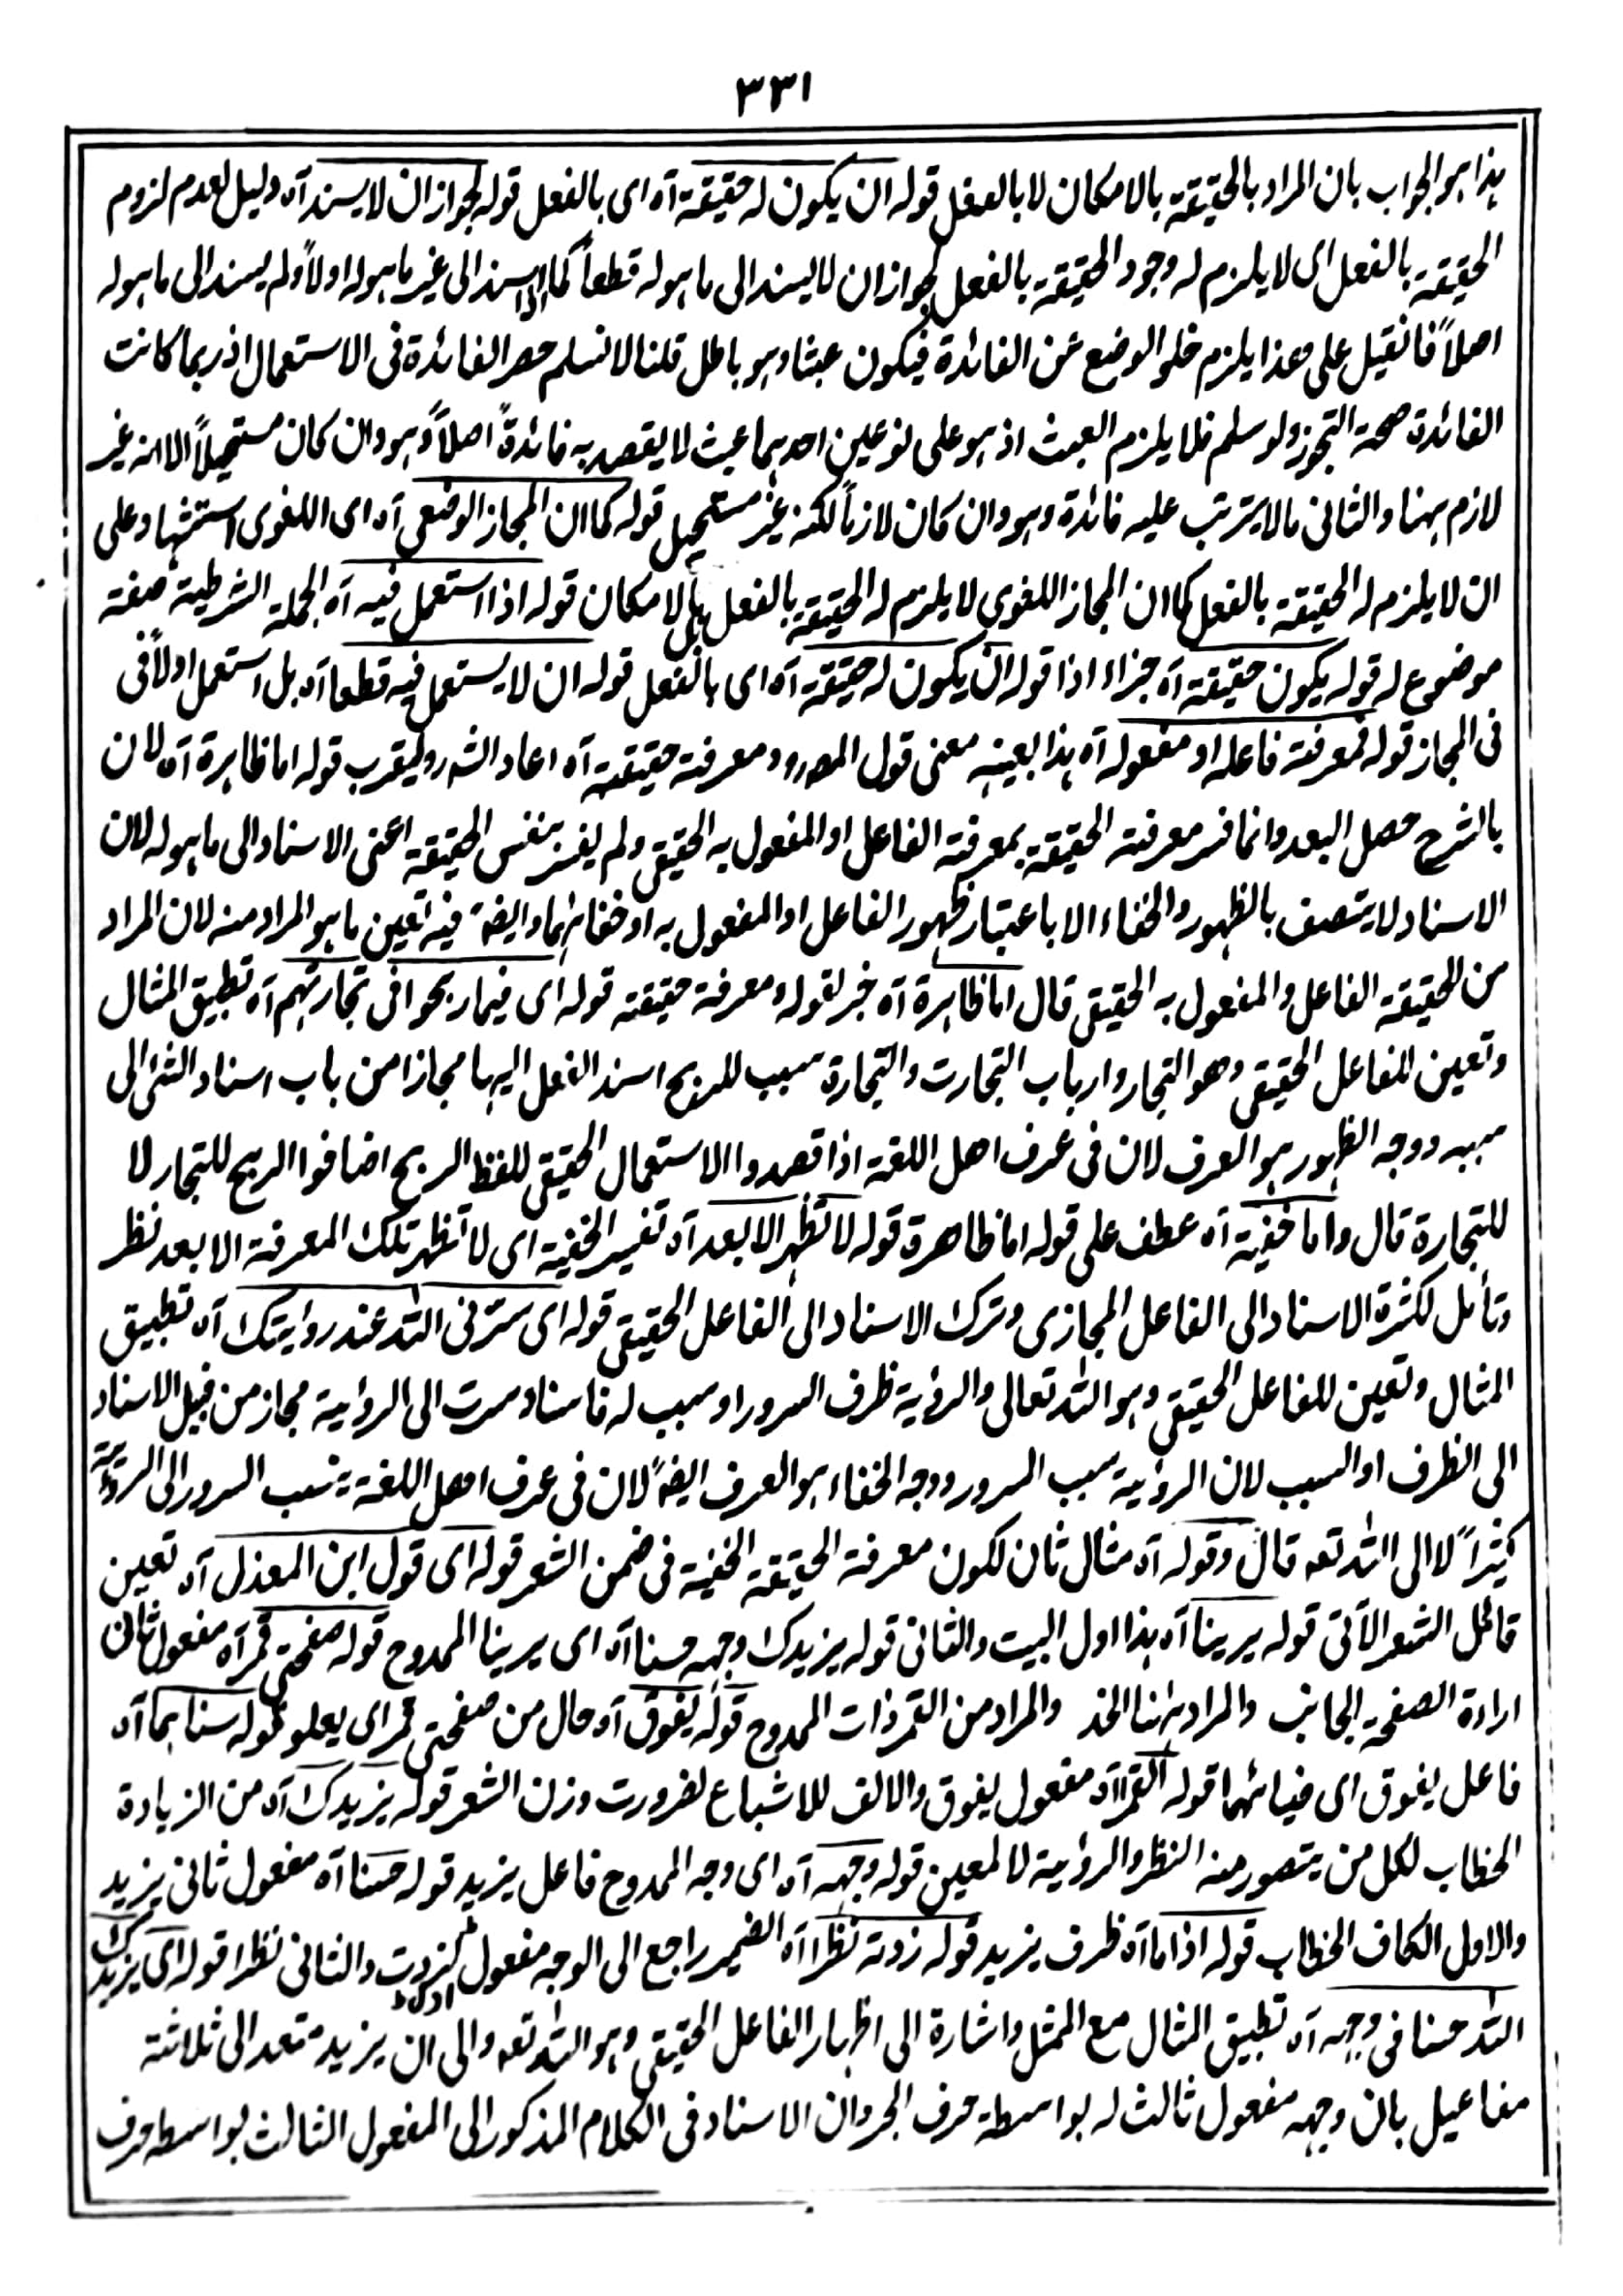 ٣٣١
هذا هو الجواب بان المراد بالحقيقة بالامكان لا بالفعل قوله ان يكون له حقيقة آه اى بالفعل قوله لجواز ان لا يسند آه دليل لعدم لزوم
الحقيقة بالفعل اى لا يلزم له وجود الحقيقة بالفعل لجواز ان لا يسند الى ما هو له قطعاً كما اذا اسند الى غير ما هو له اولاً ولم يسند الى ما هو له
اصلاً فانقيل على هذا يلزم خلو الوضع عن الفائدة فيكون عبثا وهو باطل قلنا لا نسلم حصر الفائدة فى الاستعمال اذ ربما كانت
الفائدة صحة التجوز ولو سلم فلا يلزم العبث اذ هو على نوعين احدهما عبث لا يقصد به فائدةً اصلاً وهو وان كان مستحيلاً الا انه غير
لازم ههنا والثانى ما لا يترتب عليه فائدة وهو وان كان لازماً لكنه غير مستحيل قوله كما ان المجاز الوضعى آه اى اللغوى استشهاد على
ان لا يلزم له الحقيقة بالفعل كما ان المجاز اللغوى لا يلزم له الحقيقة بالفعل بل بالامكان قوله اذا استعمل فيه آه الجملة الشرطية صفة
موضوع له قوله يكون حقيقة آه جزاء اذا قوله ان يكون له حقيقة آه اى بالفعل قوله ان لا يستعمل فيه قطعا آه بل استعمل اولاً فى
فى المجاز قوله فمعرفة فاعله او مفعوله آه هذا بعينه معنى قول المصرو ومعرفة حقيقة آه اعاد الشرو ليقرب قوله اما ظاهرة آه لان
بالشرح حصل البعد وانما فسر معرفة الحقيقة بمعرفة الفاعل او المفعول به الحقيقى ولم يفسر بنفس الحقيقة اعنى الاسناد الى ما هو له لان
الاسناد لا يتصف بالظهور والخفاء الا باعتبار ظهور الفاعل او المفعول به او خفائهما وايضا فيه تعين ما هو المراد منه لان المراد
من الحقيقة الفاعل والمفعول به الحقيقى قال اما ظاهرة آه خبر لقوله ومعرفة حقيقة قوله اى فيما ربحوا فى تجارتهم آه تطبيق المثال
وتعين للفاعل الحقيقى وهو التجار وارباب التجارت والتجارة سبب للربح اسند الفعل اليها مجازا من باب اسناد الشئ الى
سببه ووجه الظهور هو العرف لان فى عرف اهل اللغة اذا قصدوا الاستعمال الحقيقى للفظ الربح اضافوا الربح للتجار لا
للتجارة قال واما خفية آه عطف على قوله اما ظاهرة قوله لا تظهر الا بعد آه تفسير الخفية اى لا تظهر تلك المعرفة الا بعد نظر
وتأمل لكثرة الاسناد الى الفاعل المجازى وترك الاسناد الى الفاعل الحقيقى قوله اى سترنى الله عند روايتك آه تطبيق
المثال وتعين للفاعل الحقيقى وهو الله تعالى والرؤية ظرف السرور او سبب له فاسناد سرت الى الرؤية مجاز من قبيل الاسناد
الى الظرف او السبب لان الرؤية سبب السرور ووجه الخفاء هو العرف ايضاً لان فى عرف اهل اللغة ينسب السرور الى الرؤية
كثيراً لا الى الله تعه قال وقوله آه مثال ثان لكون معرفة الحقيقة الخفية فى ضمن الشعر قوله اى قول ابن المعذل آه تعين
قائل الشعر الآتى قوله يرينا آه هذا اول البيت والثانى قوله يزيدك وجهه حسنا آه اى يرينا الممدوح قوله صفحتى قمر آه مفعول ثان
اراءة الصفحة الجانب والمراد ههنا الخد والمراد من القمر ذات الممدوح قوله يفوق آه حال من صفحتى قمر اى يعلو قوله سناهما آه
فاعل يفوق اى ضيائهما قوله القمرا آه مفعول يفوق والالف للاشباع لضرورت وزن الشعر قوله يزيدك آه من الزيادة
الخطاب لكل من يتصور منه النظر والرؤية لا لمعين قوله وجهه آه اى وجه الممدوح فاعل يزيد قوله حسنا آه مفعول ثانى يزيد
والاول الكاف الخطاب قوله اذا ما آه ظرف يزيد قوله زدته نظرا آه الضمير راجع الى الوجه مفعول اول لزدت والثانى نظرا قوله اى يزيدك
الله حسنا فى وجهه آه تطبيق المثال مع الممثل واشارة الى اظهار الفاعل الحقيقى وهو الله تعه والى ان يزيد متعد الى ثلاثة
مفاعيل بان وجهه مفعول ثالث له بواسطة حرف الجر وان الاسناد فى الكلام المذكور الى المفعول الثالث بواسطه حرف